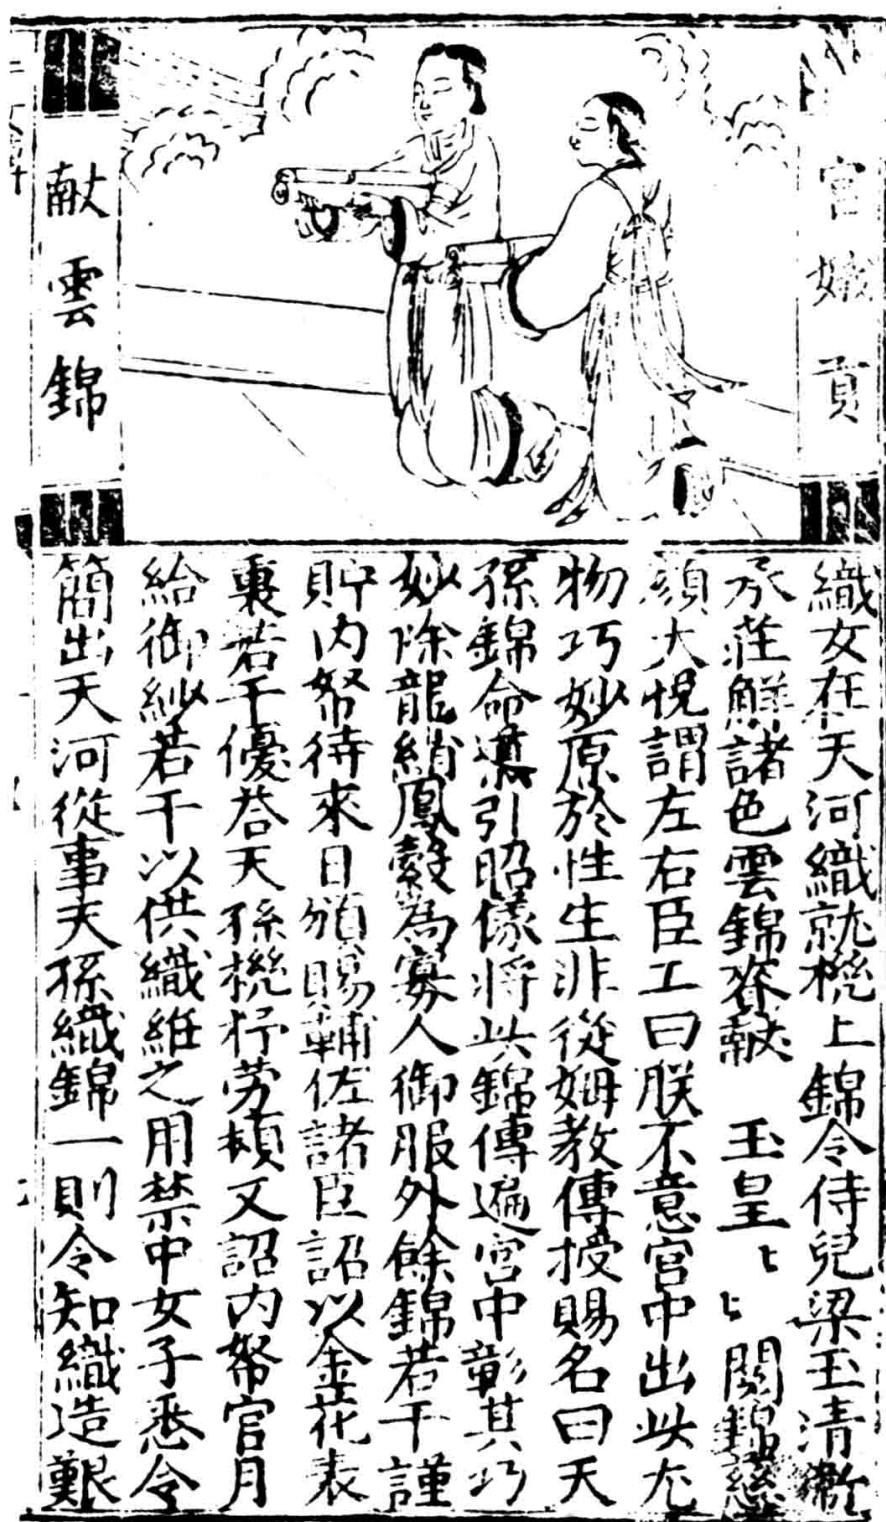 宮娥貢
献雲錦
織女在天河織就機上錦令侍兒梁玉清衛
承莊鮮諸色雲錦賫献玉皇〻〻閱錦慈
顔大悅謂左右臣工曰朕不意宮中出此尤
物巧妙原於性生非從姆教傳授賜名曰天
孫錦命導引昭儀將此錦傳遍宮中彰其巧
妙除龍綃鳳縠為寡人御服外餘錦若干謹
貯內帑待來日頒賜輔佐諸臣詔以金花表
裏若干優荅天孫機杼劳頓又詔內帑官月
給御紗若干以供織維之用禁中女子悉令
簡出天河從事天孫織錦一則令知織造艱